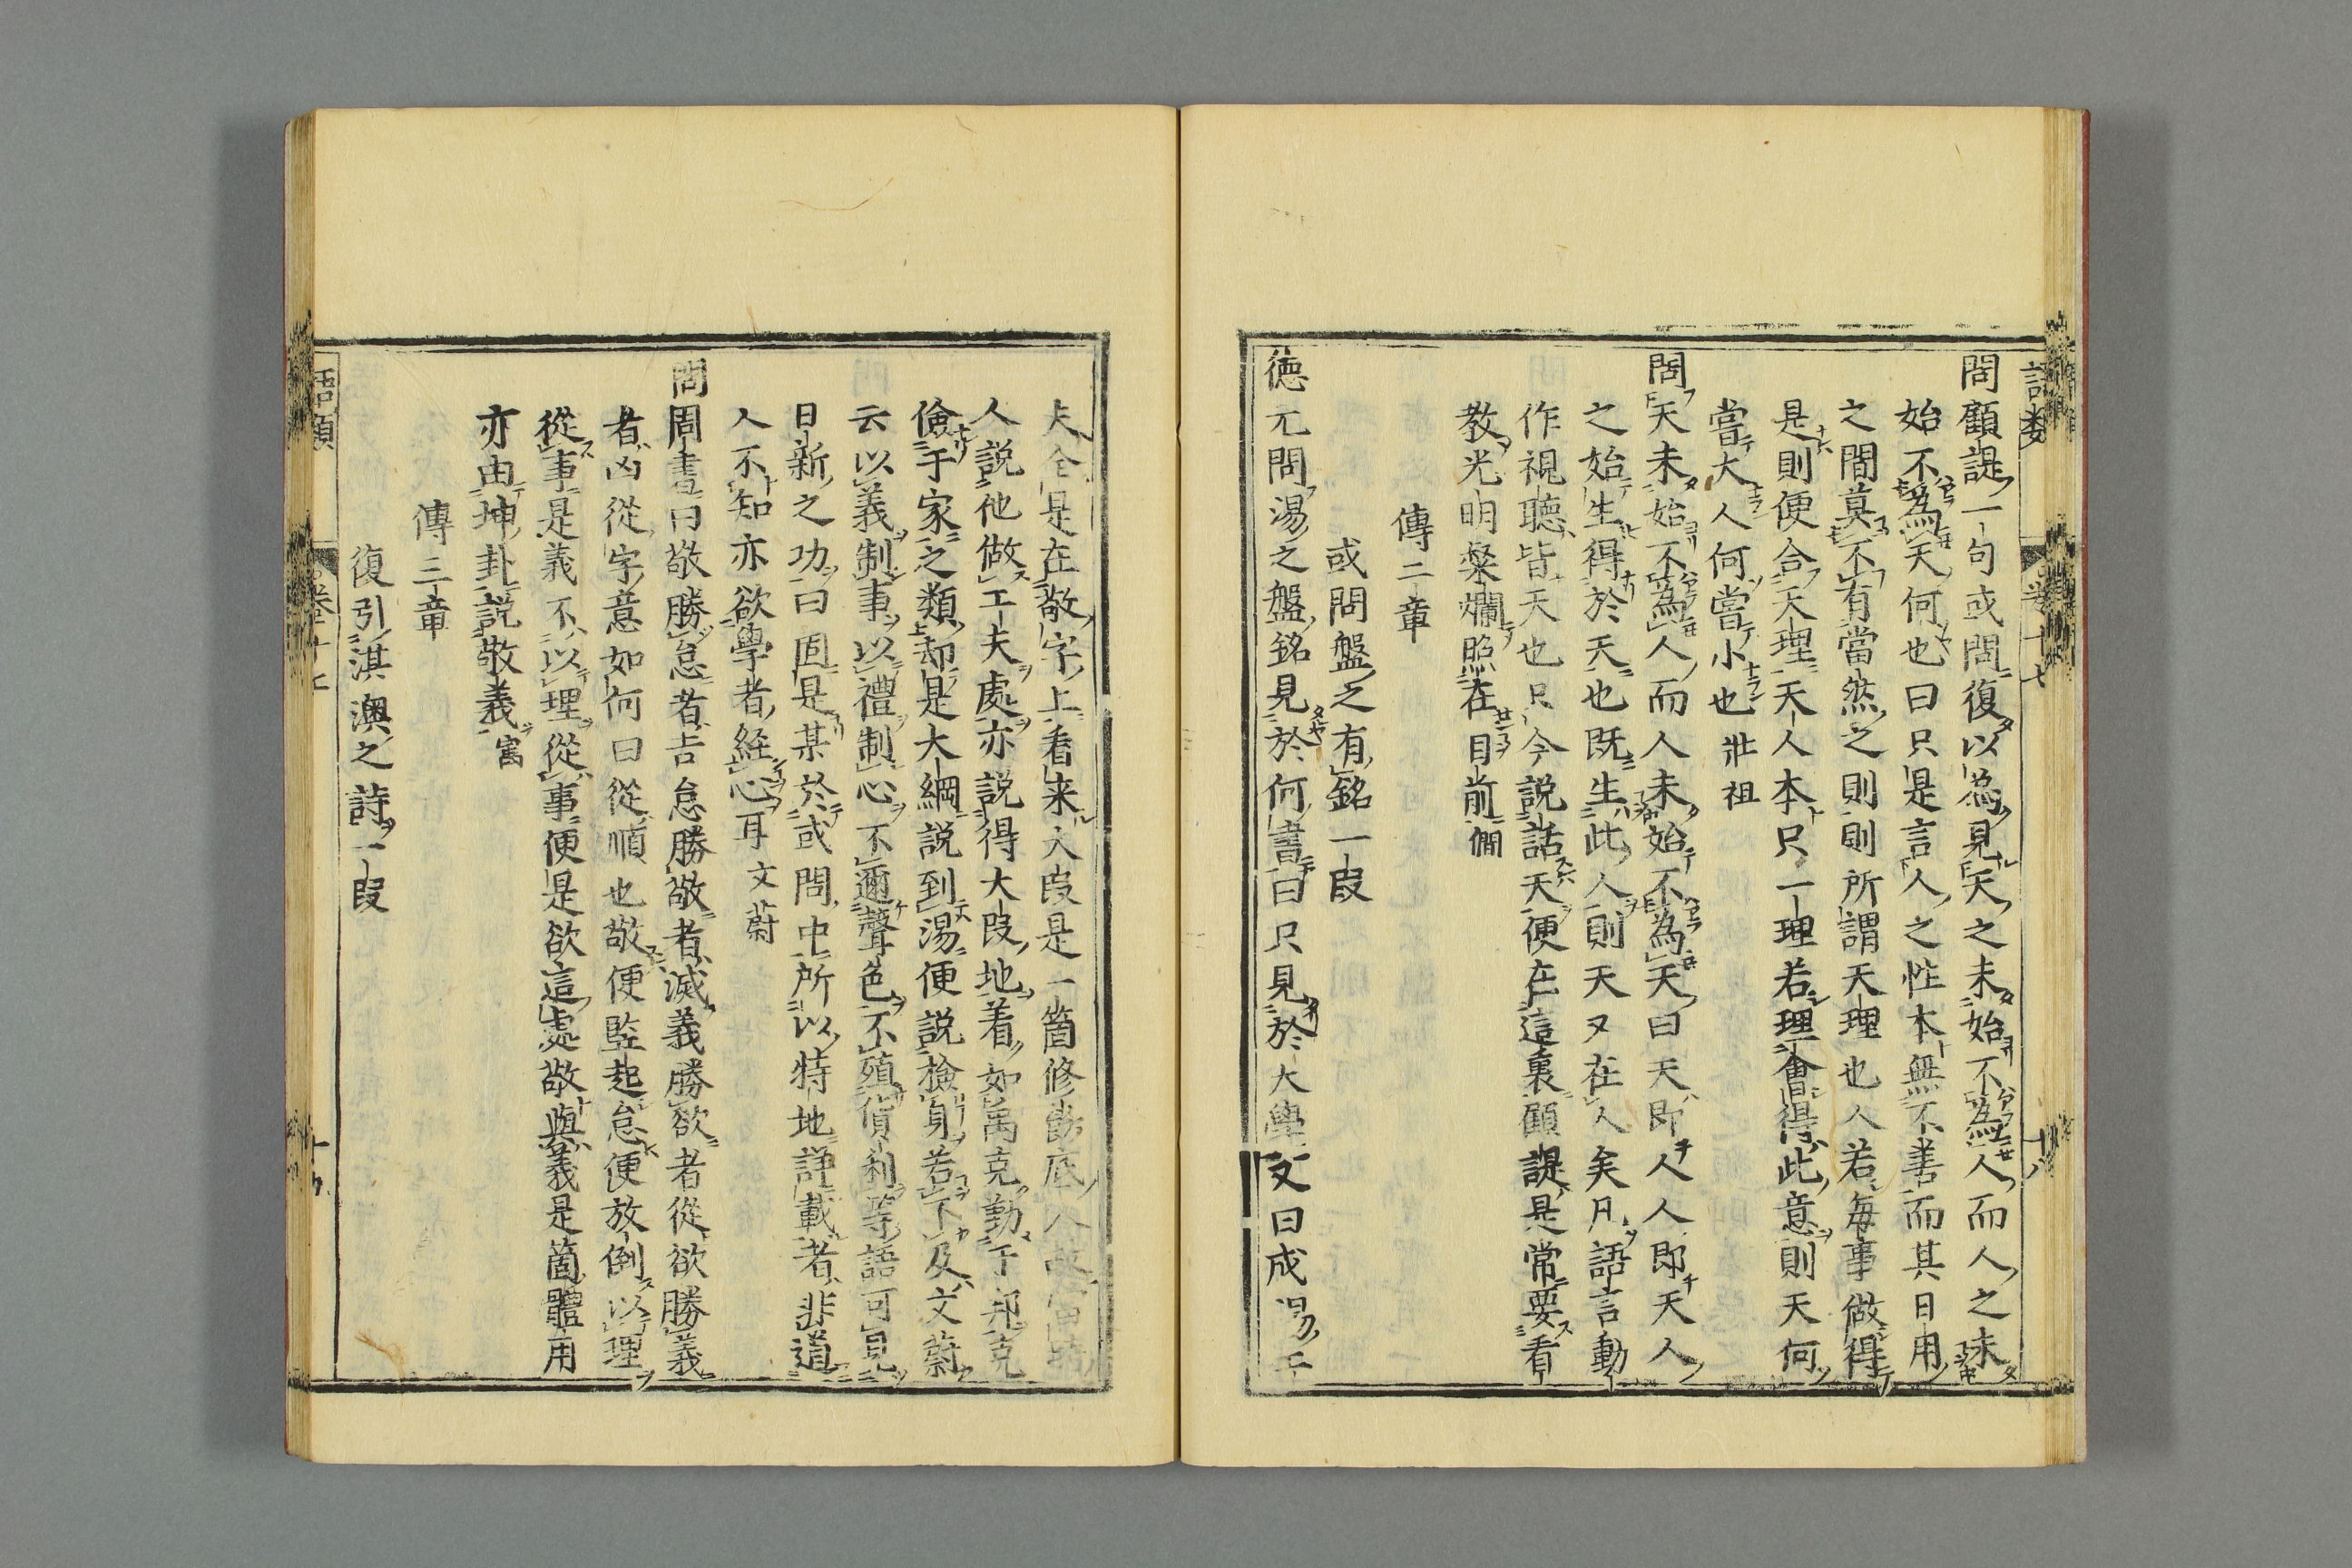 問顧諟一句或問復以為見天之未始不為人而人之未
始不為天何也曰只是言人之性本無不善而其日用
之間莫不有當然之則則所謂天理也人若每事做得
是則便合天理天人本只一理若理會得此意則天何
嘗大人何嘗小也壯祖
問天未始不為人而人未始不為天曰天即人人即天人
之始生得於天也既生此人則天又在人矣凡語言動
作視聽皆天也只今說話天便在這裏顧諟是常要看
教光明燦爛照在目前僩
傳二章
或問盤之有銘一段
德元問湯之盤銘見於何書曰只見於大學又曰成湯工
夫全是在敬字上看来大段是一箇修飭底人故當時
人說他做工夫處亦說得大段地着如禹克勤于邦克
儉于家之類却是大綱說到湯便說檢身若不及文蔚
云以義制事以禮制心不邇聲色不殖貨利等語可見
日新之功曰固是某於或問中所以特地詳載者非道
人不知亦欲學者經心耳文蔚
問周書曰敬勝怠者吉怠勝敬者滅義勝欲者從欲勝義
者凶從字意如何曰從順也敬便竪起怠便放倒以理
從事是義不以理從事便是欲這處敬與義是箇體用
亦由坤卦說敬義㝢
傳三章
復引淇澳之詩一段
語類
卷十七
十八